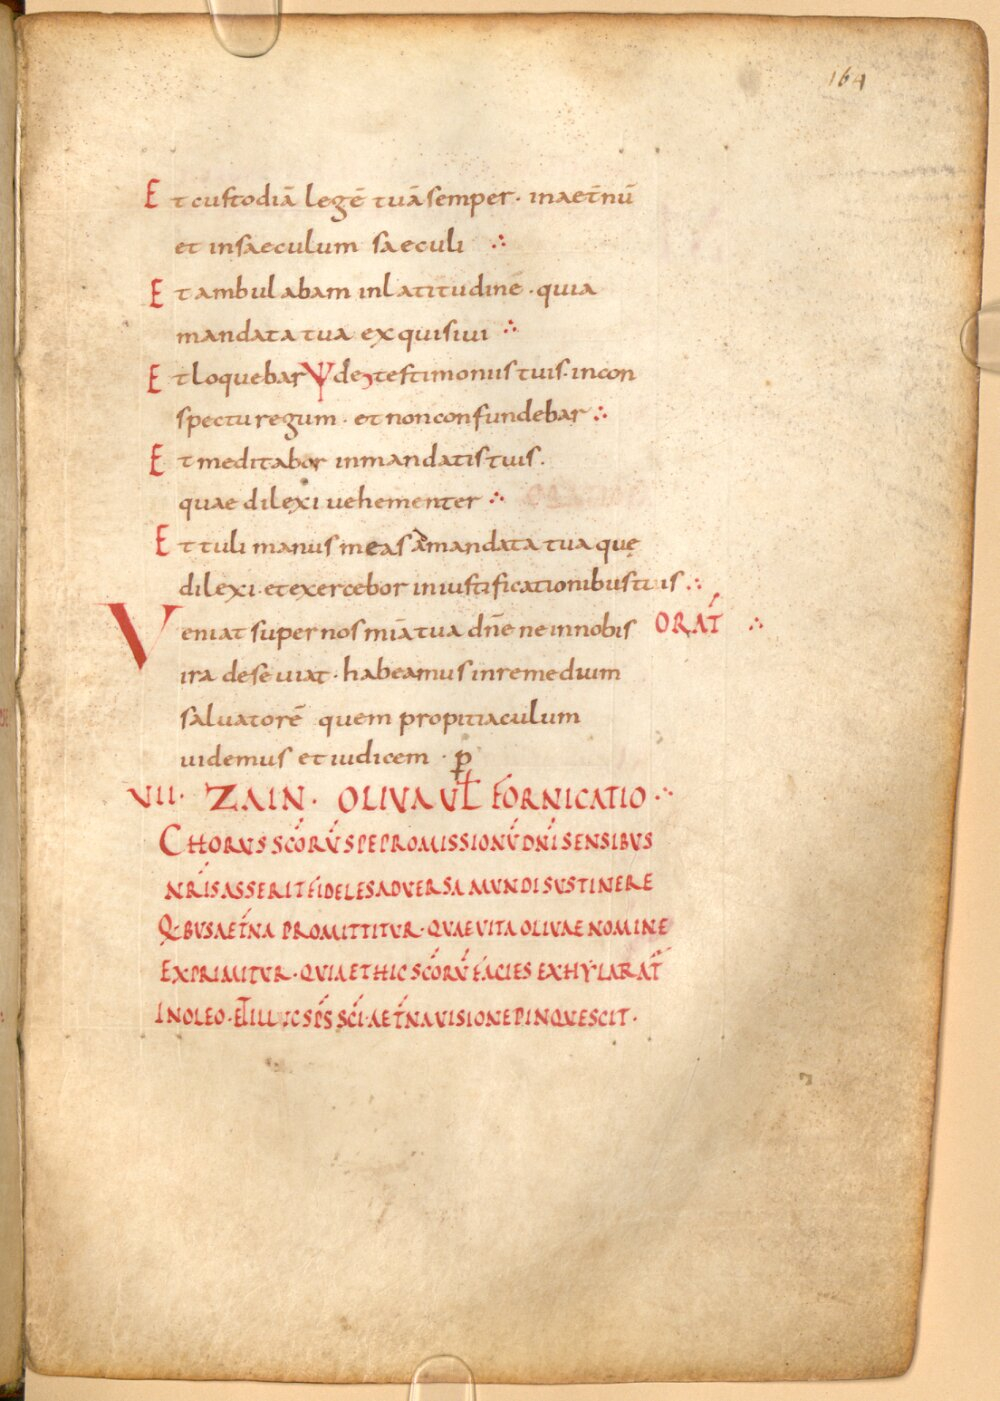 164
Et custodiā legē tuā semper · in aet̄nū
et in saeculum saeculi ∴
Et ambulabam in latitudinē · quia
mandata tua exquisiui ∴
Et loquebar de testimoniis tuis · in con
spectu regum · et non confundebar ∴
Et meditabor in mandatis tuis ·
quae dilexi uehementer ∴
Et tuli manus meas a mandata tua quę
dilexi · et exercebor in iustificationibus tuis ∴
Veniat super nos miā tua dn̄e ne in nobis ORAT̄ ∴
ira deseuiat · habeamus in remedium
saluatorē quem propitiaculum
uidemus et iudicem · p
VII · ZAIN · OLIVA VL̄ FORNICATIO ∴
CHORVS SC̄ORV̄ SPE PROMISSIONV̄ DN̄I SENSIBVS
NR̄IS ASSERIT FIDELES ADVERSA MVNDI SVSTINERE
QBVS AET̄NA PROMITTITVR · QVAE VITA OLIVAE NOMINE
EXPRIMITVR · QVIA ET HIC SC̄ORV̄ FACIES EXHYLARAT̄
IN OLEO · ET ILLIC SP̄S SC̄I · AET̄NA VISIONE PINQVESCIT ·